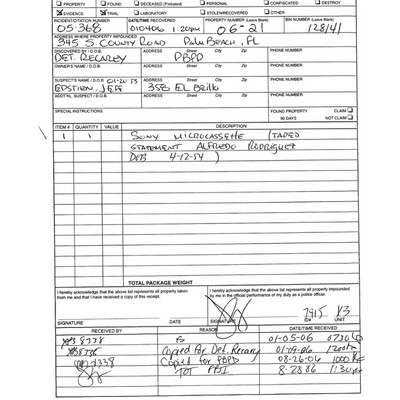 PROPERTY FOUND DECEASED (Probated) PERSONAL CONFISCATED DESTROY
EVIDENCE TRIAL LABORATORY STOLEN/RECOVERED OTHER
INCIDENT/CITATION NUMBER DATE/TIME RECOVERED PROPERTY NUMBER (Leave Blank) BIN NUMBER (Leave Blank)
05368 010406 1:20pm 06-21
ADDRESS WHERE PROPERTY IMPOUNDED
345 S. COUNTY ROAD PALM BEACH, FL
DISCOVERED BY / D.O.B. ADDRESS Street City Zip PHONE NUMBER
DET. RECAREY PBPD
OWNER'S NAME / D.O.B. ADDRESS Street City Zip PHONE NUMBER
SUSPECT'S NAME / D.O.B. ADDRESS Street City Zip PHONE NUMBER
JEFF 358 EL BRILLO
ADD'TNL SUSPECT / D.O.B. ADDRESS Street City Zip PHONE NUMBER
SPECIAL INSTRUCTIONS FOUND PROPERTY CLAIM
90 DAYS NOT CLAIM
ITEM # QUANTITY VALUE DESCRIPTION
1 1 SONY MICROCASSETTE (TAPED
STATEMENT ALFREDO RODRIGUEZ
4-12-54)
TOTAL PACKAGE WEIGHT
I hereby acknowledge that the above list represents all property taken from me and that I have received a copy of this receipt.
I hereby acknowledge that the above list represents all property impounded by me in the official performance of my duties as a police officer.
7915 K3
SIGNATURE SIGNATURE ID# UNIT
RECEIVED BY REASON DATE/TIME RECEIVED
01-05-06
Copied For Det. Recarey 01-19-06
Copied for PBPD 08-26-06 1000
TOT FBI 8-28-06